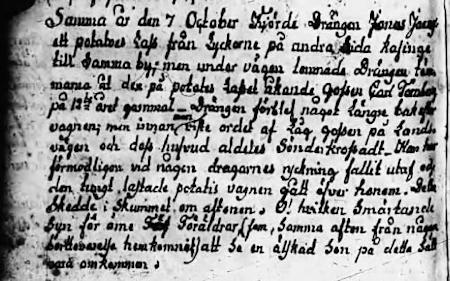 Samma år den 7 October Kjörde Drängen Jonas
ett potatoes lass från Lyckorne på andra sida
till samma by; men under vägen lemnade Drängen
åt den på potates lasset åkande gossen Carl
på 12te året gammal – Drängen förblef något längre bakefter
vagnen; men innan man viste ordet af låg gossen på Lands
vägen och dess hufvud aldeles Sönderkrossadt – Han har
förmodligen vid någon dragarnes ryckning fallit utaf och
den tungt lastade potatis vagnen gått öfver honom. Detta
skedde i Skummet om aftonen. O! hvilken Smärtande
Syn för öme Föräldrar, som, samma afton från någon
hemkomne, att se en älskad Son på detta sätt
vara omkommen.